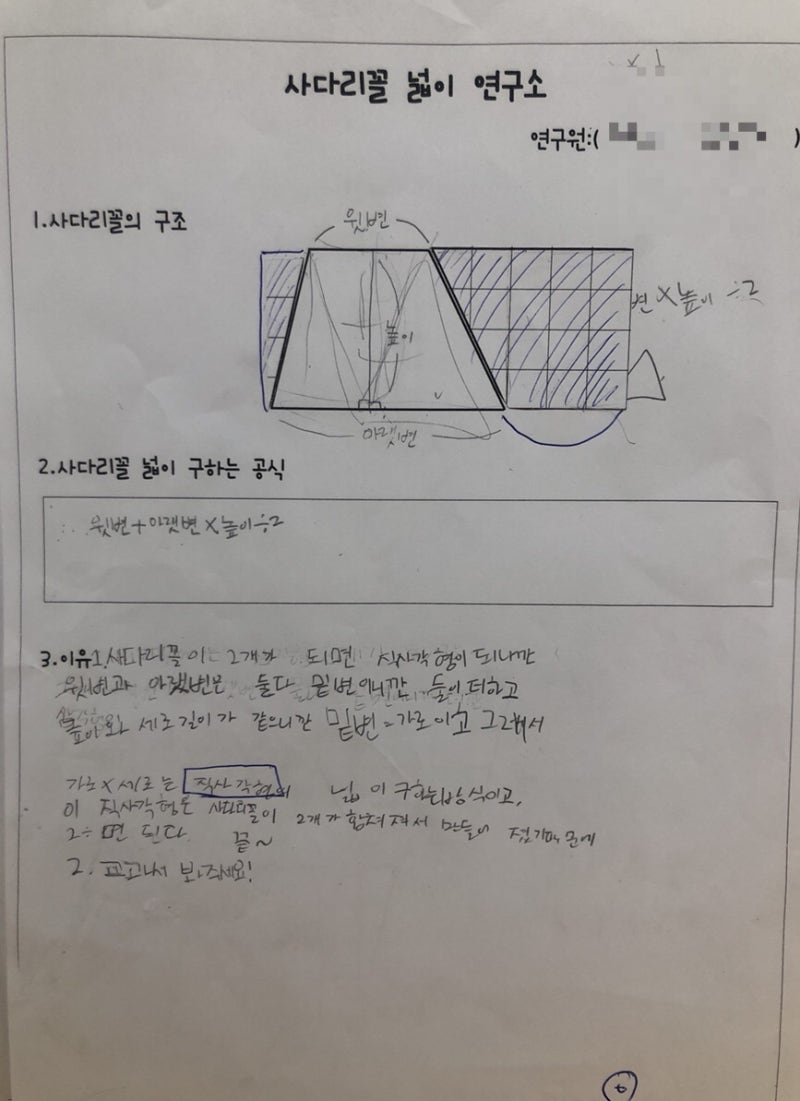 사다리꼴 넓이 연구소
연구원:( )
1.사다리꼴의 구조
윗변
변 X 높이 ÷2
높이
아랫변
2.사다리꼴 넓이 구하는 공식
윗변+아랫변 X 높이÷2
3.이유 1. 사다리꼴이 2개가 되면 직사각형이 되니깐
윗변과 아랫변은 둘다 밑변이니깐 둘이 더하고
높이와 세로 길이가 같으니깐 밑변=가로이고 그래서
가로X세로는 직사각형의 넓이 구하는방식이고,
이 직사각형은 사다리꼴이 2개가 합쳐져서 만들어 졌기때문에
2÷ 면 된다. 끝~
2. 보주세요!
6